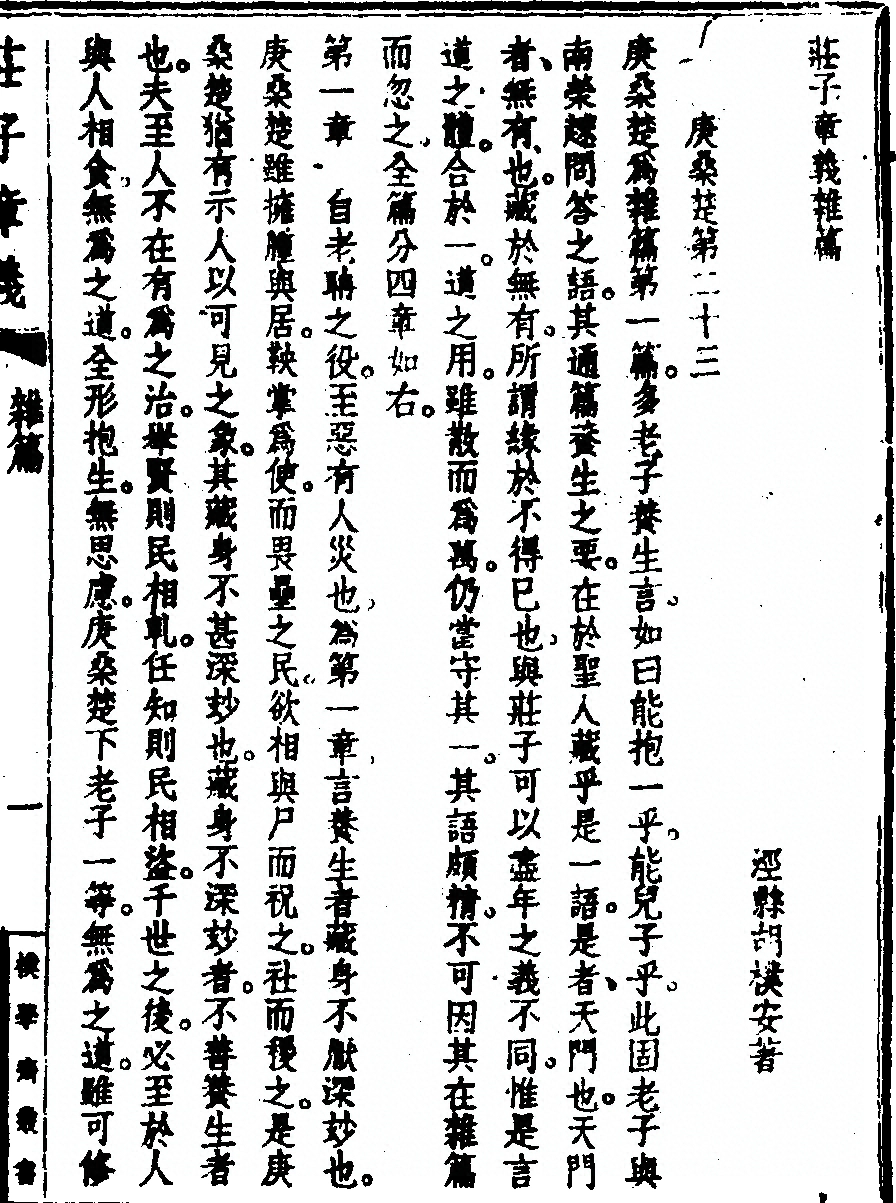 莊子章義雜篇
涇縣胡樸安著
庚桑楚第二十三
庚桑楚爲雜篇第一篇。多老子養生言。如曰能抱一乎。能兒子乎。此固老子與
南榮趎問答之語。其通篇養生之要。在於聖人藏乎是一語。是者、天門也。天門
者、無有、也。藏於無有。所謂緣於不得已也。與莊子可以盡年之義不同。惟是言
道之體。合於一。道之用。雖散而爲萬。仍當守其一。其語頗精。不可因其在雜篇
而忽之。全篇分四章如右。
第一章　自老聃之役。至惡有人災也。爲第一章。言養生者藏身不猒深妙也。
庚桑楚雖擁腫與居。鞅掌爲使。而畏壘之民。欲相與尸而祝之。社而稷之。是庚
桑楚猶有示人以可見之象。其藏身不甚深妙也。藏身不深妙者。不善養生者
也。夫至人不在有爲之治。舉賢則民相軋。任知則民相盜。千世之後。必至於人
與人相食。無爲之道。全形抱生。無思慮。庚桑楚下老子一等。無爲之道。雖可修
莊子章義
雜篇
一
樸學齋叢書